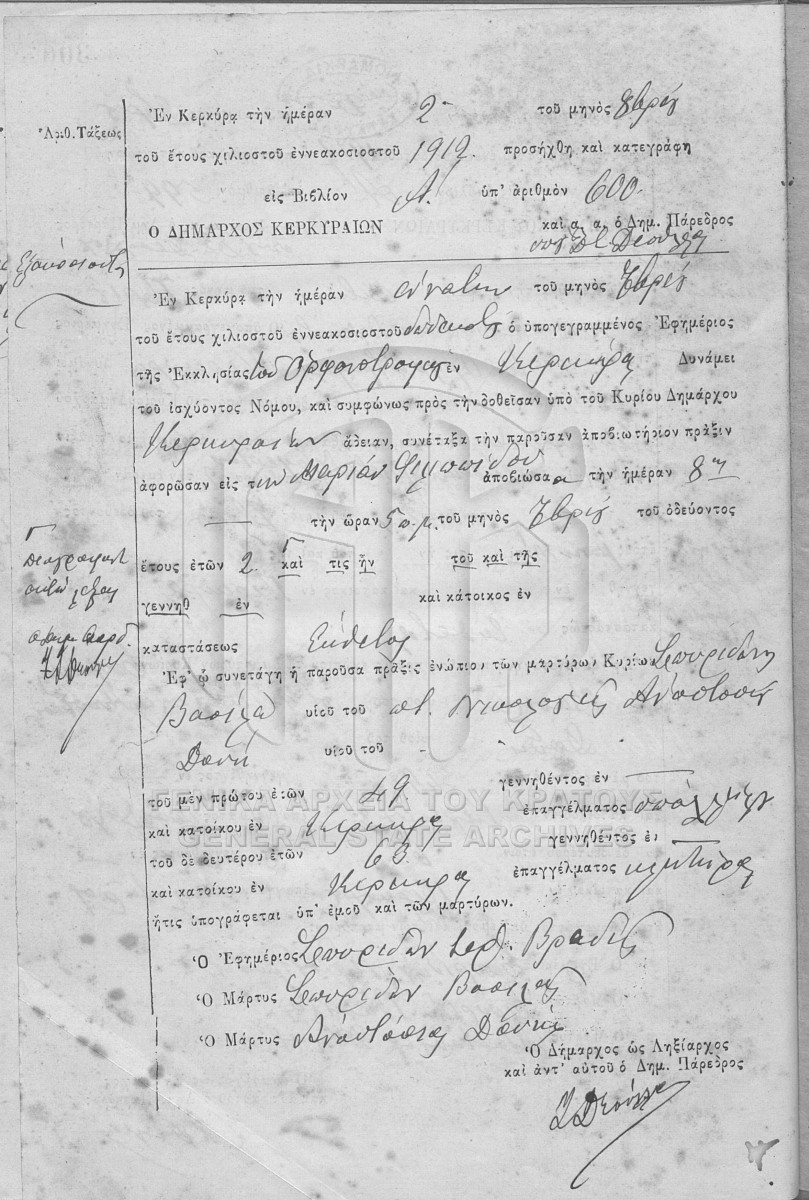 Ἐν Κερκύρᾳ τὴν ἡμέραν 2 τοῦ μηνὸς 8βρίου
Ἀριθ. Τάξεως
τοῦ ἔτους χιλιοστοῦ ἐννεακοσιοστοῦ 1912. προσήχθη καὶ κατεγράφη
εἰς Βιβλίον Α. ὑπ' ἀριθμὸν 600.
Ὁ ΔΗΜΑΡΧΟΣ ΚΕΡΚΥΡΑΙΩΝ καὶ α. α. ὁ Δημ. Πάρεδρος
Ἑξακόσια
Ἐν Κερκύρᾳ τὴν ἡμέραν ἐνάτην τοῦ μηνὸς 7βρίου
τοῦ ἔτους χιλιοστοῦ ἐννεακοσιοστοῦ δωδεκάτου ὁ ὑπογεγραμμένος Ἐφημέριος
τῆς Ἐκκλησίας τοῦ Ὀρφανοτροφείου ἐν Κερκύρᾳ Δυνάμει
τοῦ ἰσχύοντος Νόμου, καὶ συμφώνως πρὸς τὴν δοθεῖσαν ὑπὸ τοῦ Κυρίου Δημάρχου
Κερκυραίων ἄδειαν, συνέταξα τὴν παροῦσαν ἀποβιωτήριον πρᾶξιν
ἀφορῶσαν εἰς τὴν Μαρίαν Φιλιππίδου ἀποβιώσασα τὴν ἡμέραν 8ην
τὴν ὥραν 5 π.μ. τοῦ μηνὸς 7βρίου τοῦ ὁδεύοντος
ἔτους ἐτῶν 2 καὶ τις ἦν τοῦ καὶ τῆς
γεννηθ ἐν καὶ κάτοικος ἐν
καταστάσεως Ἔκθετος
Ἐφ' ᾧ συνετάγη ἡ παροῦσα πρᾶξις ἐνώπιον τῶν μαρτύρων Κυρίων Σπυρίδων
Βασιλᾶ υἱοῦ τοῦ Ἀναστασίου
Δονᾶ υἱοῦ τοῦ -
τοῦ μὲν πρώτου ἐτῶν 49 γεννηθέντος ἐν
καὶ κατοίκου ἐν Κέρκυρα ἐπαγγέλματος
τοῦ δε δευτέρου ἐτῶν 63 γεννηθέντος ἐν
καὶ κατοίκου ἐν Κέρκυρα ἐπαγγέλματος κλητῆρα
ἥτις ὑπογράφεται ὑπ' ἐμοῦ καὶ τῶν μαρτύρων.
Ὁ Ἐφημέριος Σπυρίδων Ἱερ. Βραδῆς
Ὁ Μάρτυς Σπυρίδων Βασιλᾶς
Ὁ Μάρτυς Ἀναστάσιος Δονᾶς
Ὁ Δήμαρχος ὡς Ληξίαρχος
καὶ ἀντ' αὐτοῦ ὁ Δημ. Πάρεδρος
ΓΕΝΙΚΑ ΑΡΧΕΙΑ ΤΟΥ ΚΡΑΤΟΥΣ
GENERAL STATE ARCHIVES